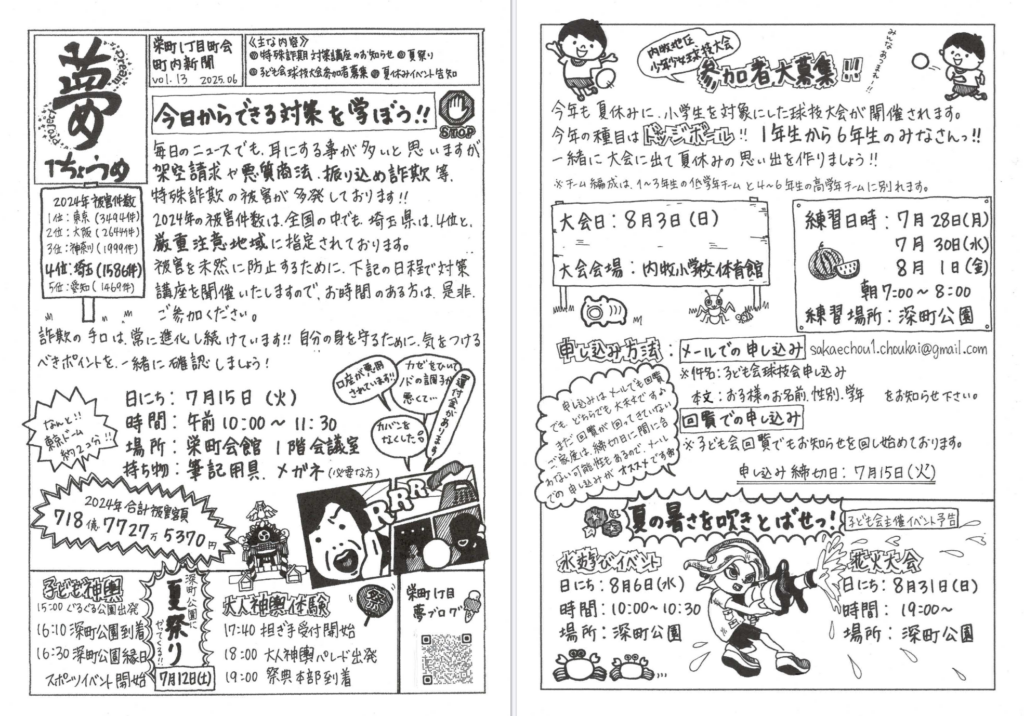 夢
dream
1ちょうめ
栄町1丁目町会
町内新聞
vol.13 2025.06
《主な内容》
◎特殊詐欺対策講座のお知らせ ◎夏祭り
◎子ども会球技会参加者募集 ◎夏休みイベント告知
今日からできる対策を学ぼう!!
STOP
毎日のニュースでも、耳にする事が多いと思いますが
架空請求や悪質商法、振り込め詐欺等、
特殊詐欺の被害が多発しております!!
2024年の被害件数は、全国の中でも、埼玉県は、4位と、
厳重注意地域に指定されております。
被害を未然に防止するために、下記の日程で対策
講座を開催いたしますので、お時間のある方は、是非、
ご参加ください。
2024年被害件数
1位:東京(3494件)
2位:大阪(2644件)
3位:神奈川(1999件)
4位:埼玉(1586件)
5位:愛知(1469件)
詐欺の手口は、常に進化し続けています!! 自分の身を守るために、気をつける
べきポイントを、一緒に確認しましょう!
なんと!!
東京ドーム
約2コ分!!
日にち:7月15日(火)
時間:午前10:00〜11:30
場所:栄町会館 1階会議室
持ち物:筆記用具、メガネ(必要な方)
口座が悪用
されています!!
カゼをひいて
ノドの調子が
悪くて…
還付金があります
カバンを
なくした
RRR
2024年合計被害額
718億7727万5370円
子ども神輿
15:00 ぐるぐる公園出発
16:10 深町公園到着
16:30 深町公園縁日
スポーツイベント開始
深町公園に
夏祭り
やってくる!!
7月12日(土)
大人神輿体験
祭
17:40 担ぎ手受付開始
18:00 大人神輿パレード出発
19:00 祭典本部到着
栄町1丁目
夢ブログ
内牧地区
少年少女球技大会
参加者大募集!!
みんなあつまれー!!
今年も夏休みに、小学生を対象にした球技大会が開催されます。
今年の種目はドッジボール!! 1年生から6年生のみなさんっ!!
一緒に大会に出て夏休みの思い出を作りましょう!!
※チーム編成は、1〜3年生の低学年チームと4〜6年生の高学年チームに別れます。
大会日:8月3日(日)
大会会場:内牧小学校体育館
練習日時:7月28日(月)
7月30日(水)
8月1日(金)
朝7:00〜8:00
練習場所:深町公園
申し込み方法:メールでの申し込み sakaechou1.choukai@gmail.com
※件名:子ども会球技会申し込み
本文:お子様のお名前、性別、学年 をお知らせ下さい。
回覧での申し込み
※子ども会回覧でもお知らせを回し始めております。
申し込み締切日:7月15日(火)
申し込みはメールでも回覧
でも、どちらでも大丈夫です♪
まだ回覧が回ってきていない
ご家庭は、締切日に間に合
わない可能性もあるので、メール
での申し込みがオススメです
夏の暑さを吹きとばせっ!
子ども会主催イベント予告
水遊びイベント
日にち:8月6日(水)
時間:10:00〜10:30
場所:深町公園
花火大会
日にち:8月31日(日)
時間:19:00〜
場所:深町公園